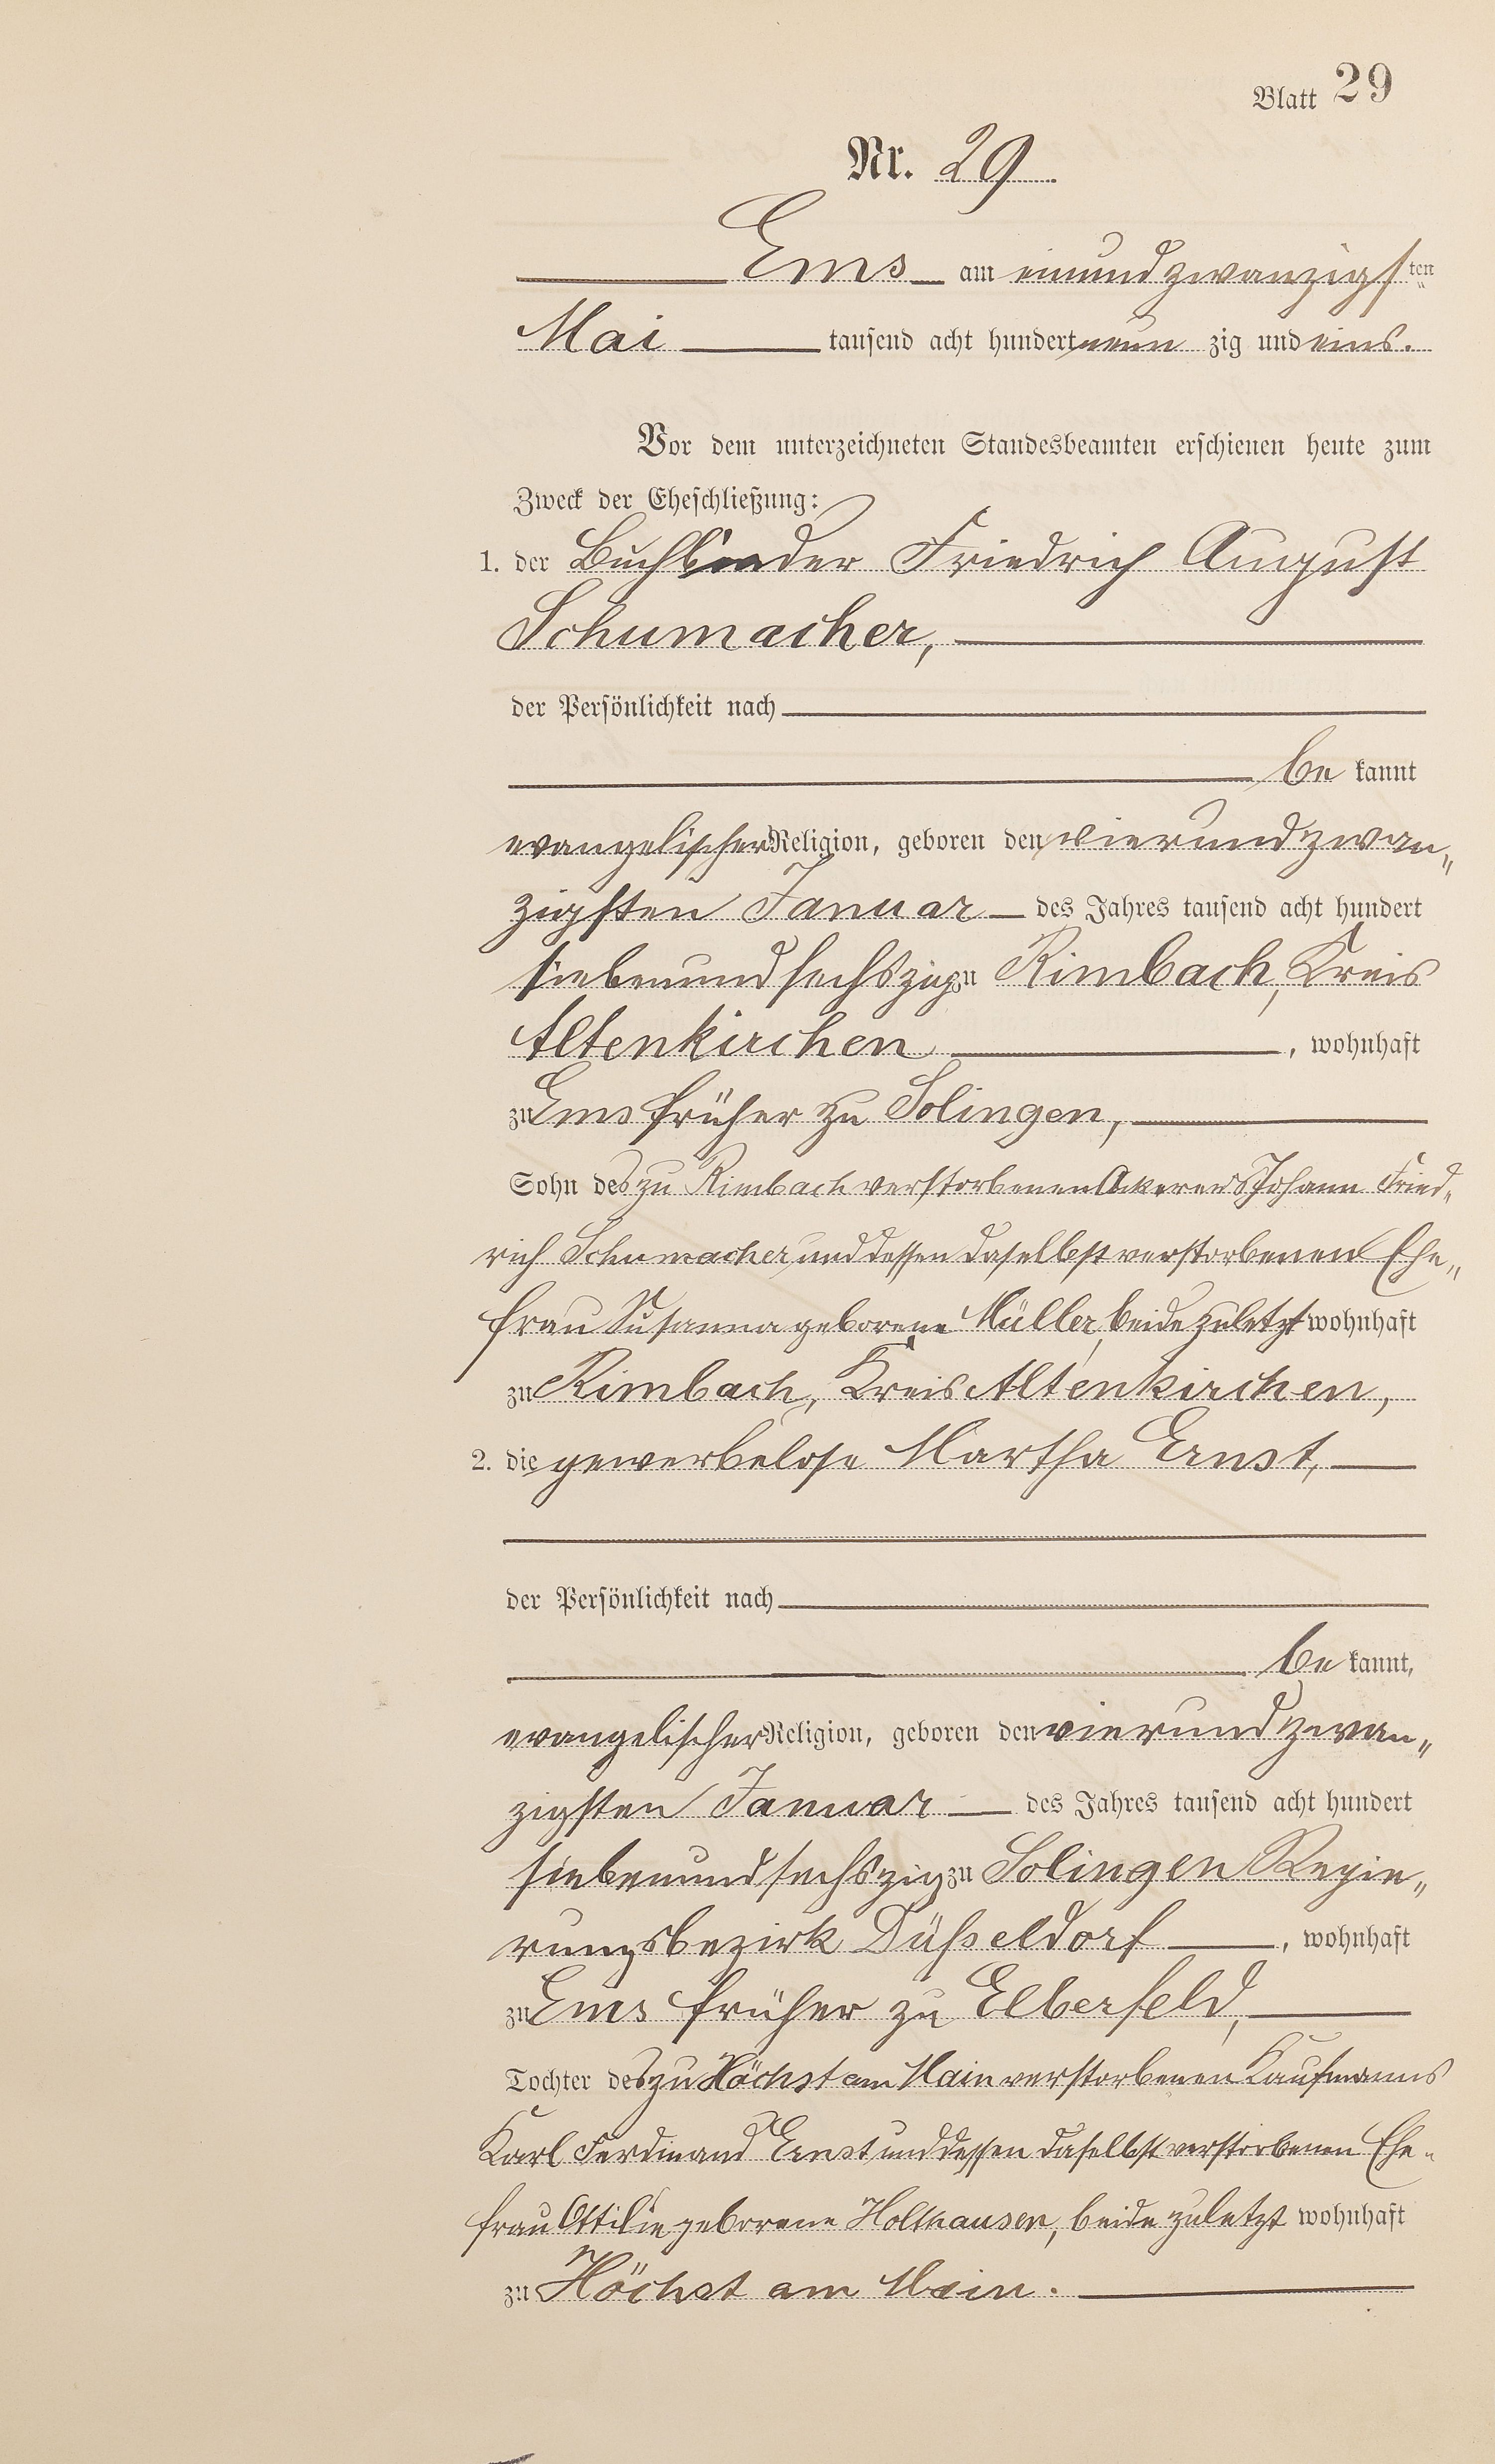 Blatt 29
Nr. 29
Ems am einundzwanzigsten
Mai tausend acht hundert neunzig und eins.
Vor dem unterzeichneten Standesbeamten erschienen heute zum
Zweck der Eheschließung:
1. der Buchbinder Friedrich August
Schumacher,
der Persönlichkeit nach
bekannt
evangelischer Religion, geboren den vierundzwan„
zigsten Januar des Jahres tausend acht hundert
siebenundsechszig zu Rimbach, Kreis
Altenkirchen, wohnhaft
zu Ems früher zu Solingen,
Sohn des zu Rimbach verstorbenen Ackerers Johann Fried„
rich Schumacher und dessen daselbst verstorbenen Ehe„
frau Susanna geborene Müller, beide zuletzt wohnhaft
zu Rimbach, Kreis Altenkirchen,
2. die gewerbelose Martha Ernst,
der Persönlichkeit nach
bekannt,
evangelischer Religion, geboren den vierundzwan„
zigsten Januar des Jahres tausend acht hundert
siebenundsechszig zu Solingen Regie„
rungsbezirk Düßeldorf, wohnhaft
zu Ems früher zu Elberfeld,
Tochter des zu Höchst am Main verstorbenen Kaufmanns
Karl Ferdinand Ernst und dessen daselbst verstorbenen Ehe„
frau Ottilie geborene Holthausen, beide zuletzt wohnhaft
zu Höchst am Main.